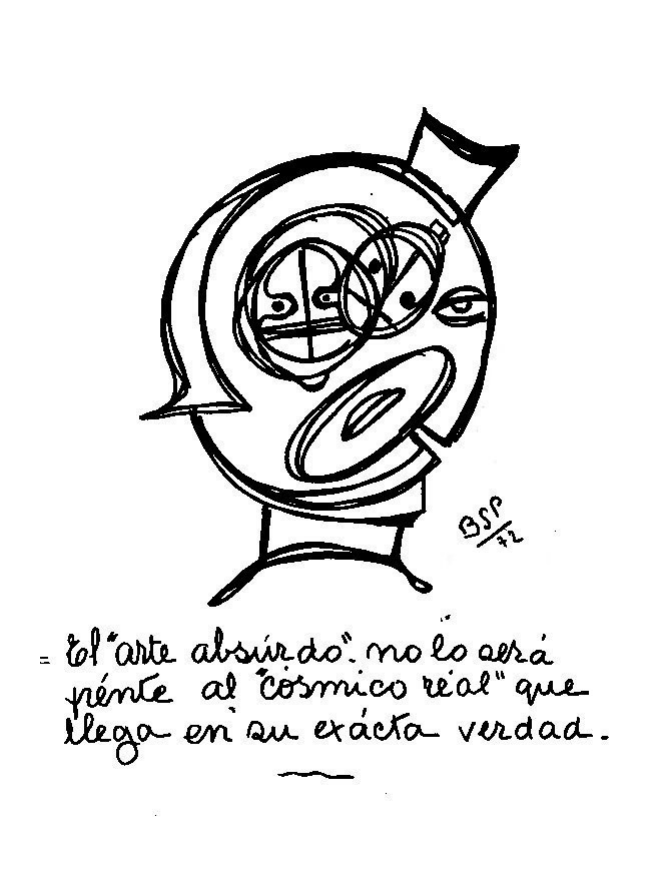 BSP
72
= El "arte absúrdo". no lo será
frénte al "cósmico real" que
llega en su exácta verdad.